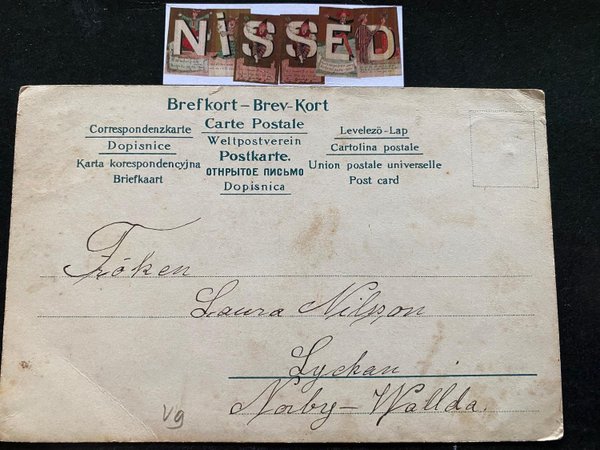 NiSSED
Brefkort – Brev-Kort
Correspondenzkarte
Carte Postale
Levelező-Lap
Dopisnice
Weltpostverein
Cartolina postale
Karta korespondencyjna
Postkarte.
Union postale universelle
Briefkaart
ОТКРЫТОЕ ПИСЬМО
Post card
Dopisnica
Fröken
Laura Nilsson
Lyckan
Norby – Wallda.
Vg